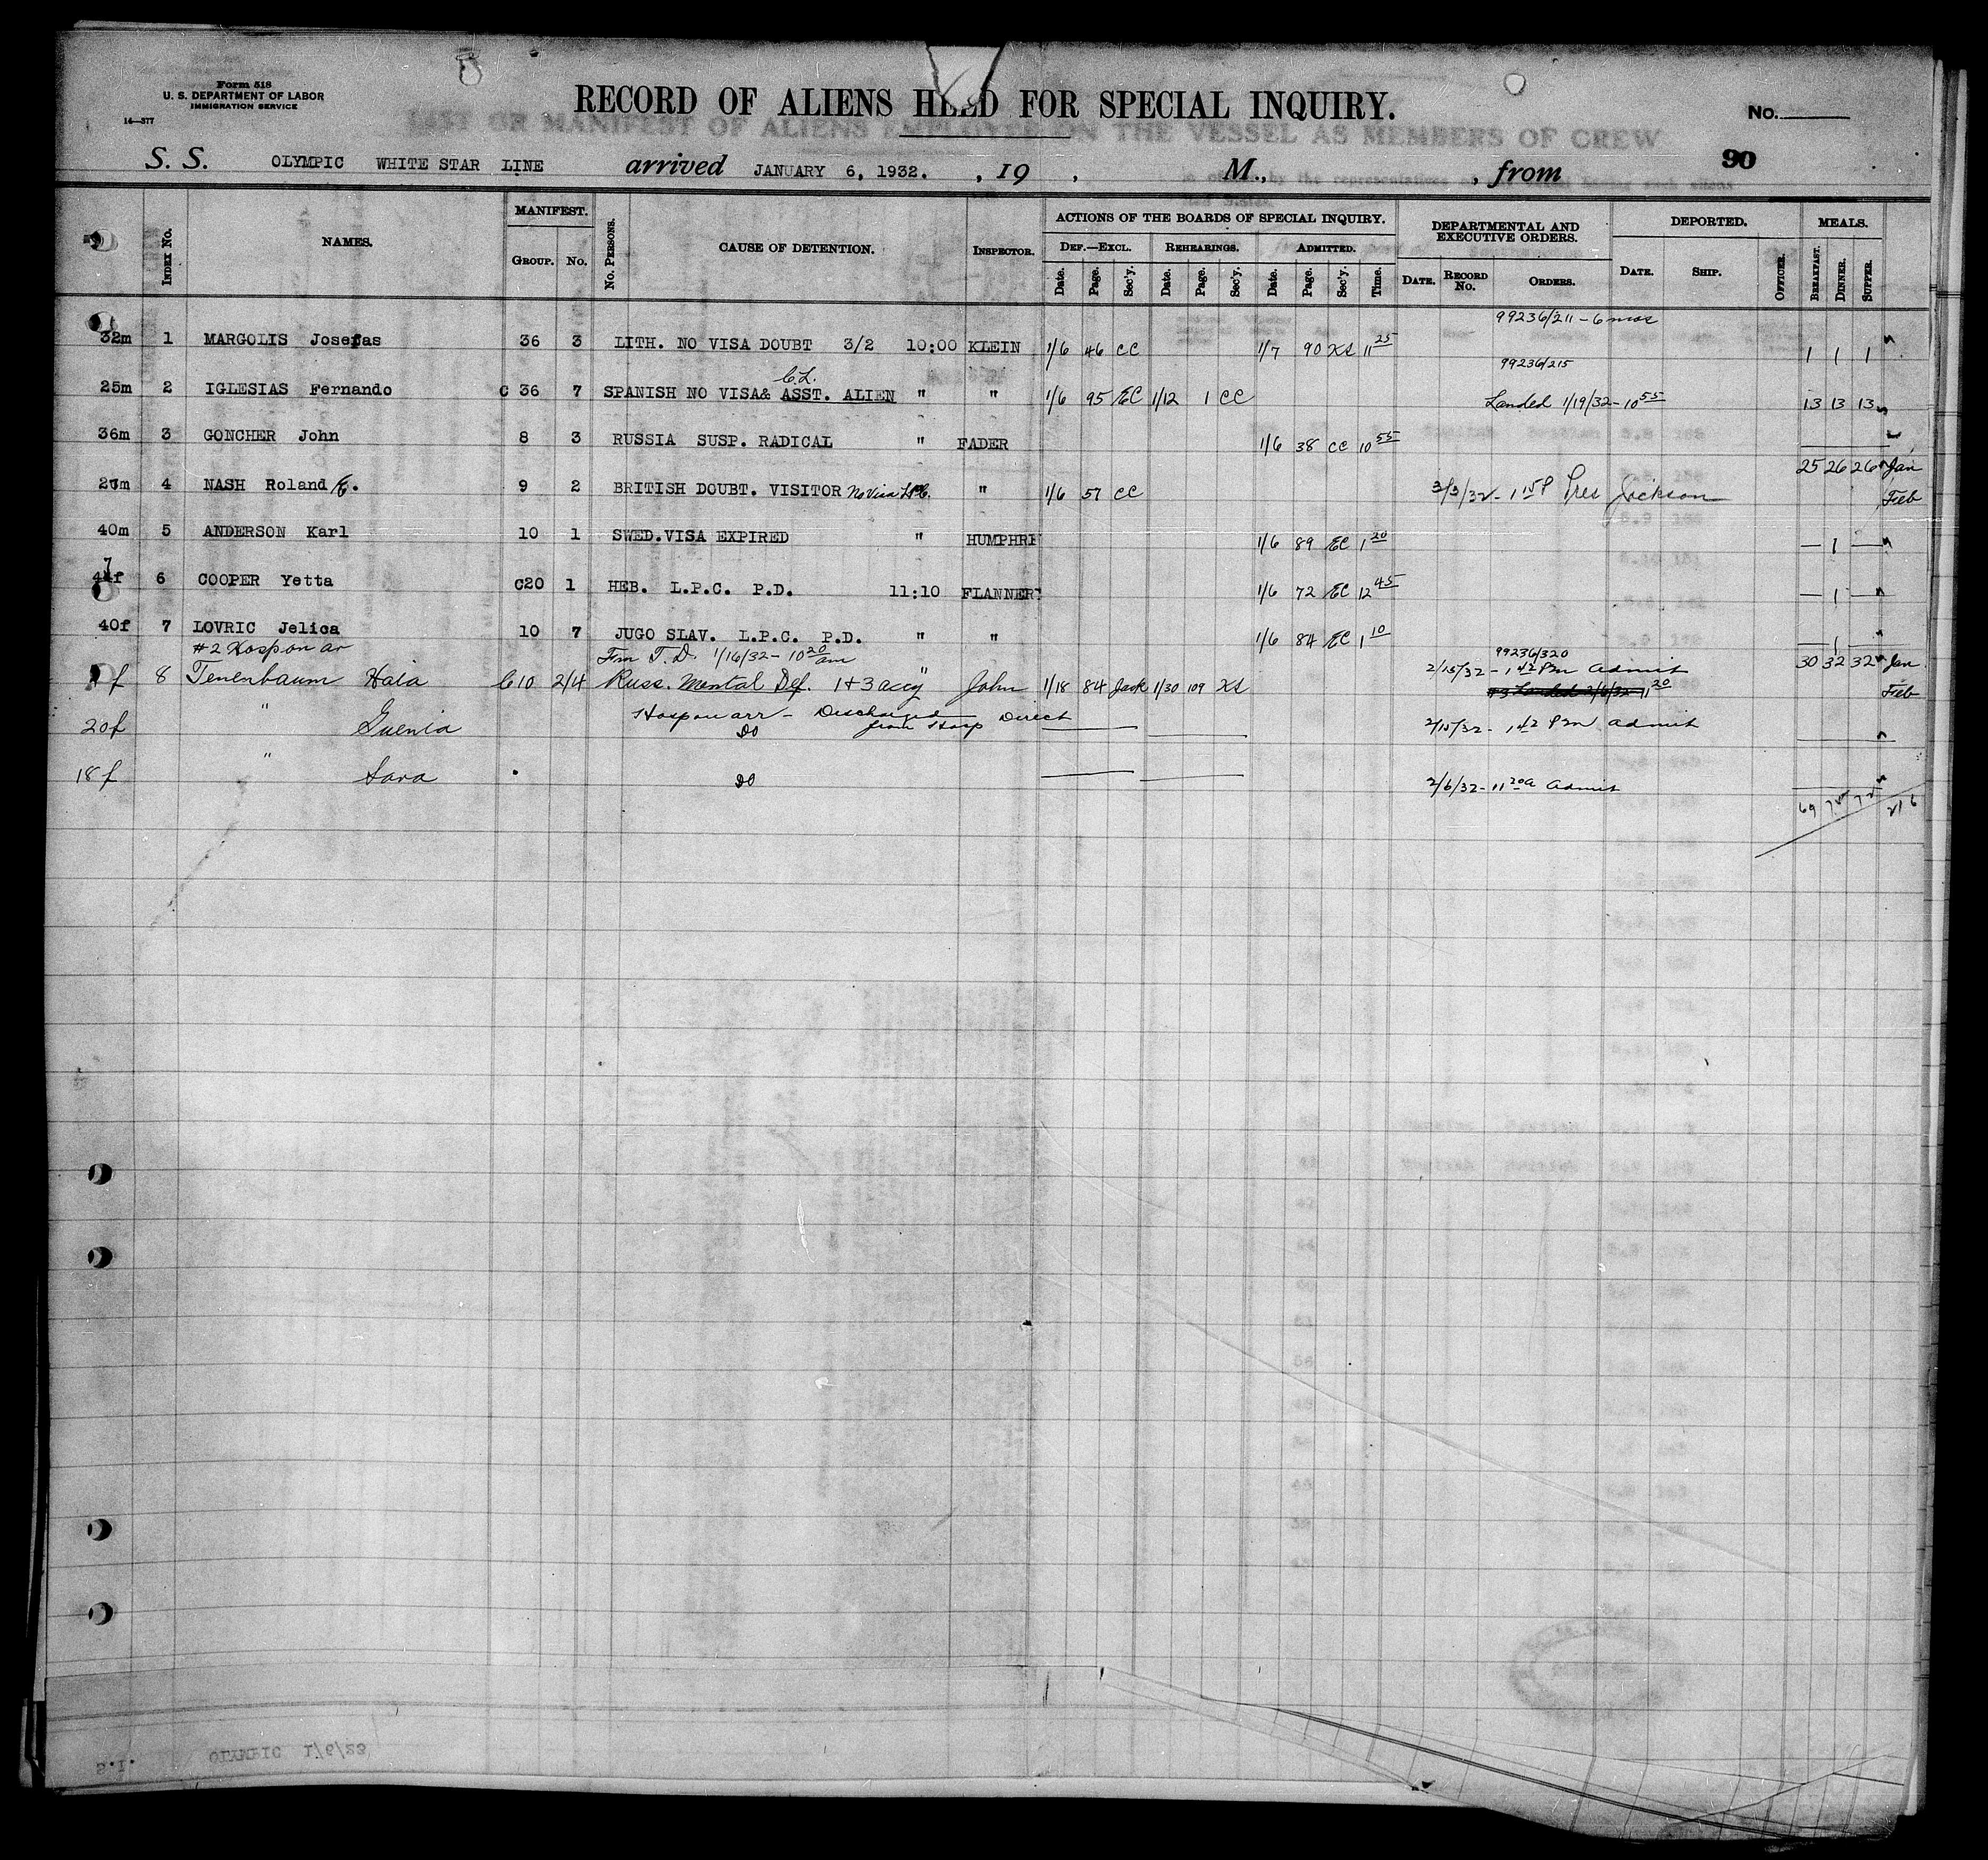 Form 518
U. S. DEPARTMENT OF LABOR
IMMIGRATION SERVICE
14—377
RECORD OF ALIENS HELD FOR SPECIAL INQUIRY.
No.
LIST OR MANIFEST OF ALIENS EMPLOYED ON THE VESSEL AS MEMBERS OF CREW
90
S. S. OLYMPIC WHITE STAR LINE arrived JANUARY 6, 1932. , 19 , M., , from
INDEX No. NAMES. MANIFEST. GROUP. No. No. PERSONS. CAUSE OF DETENTION. INSPECTOR. ACTIONS OF THE BOARDS OF SPECIAL INQUIRY. DEPARTMENTAL AND EXECUTIVE ORDERS. DEPORTED. MEALS.
DEF.—EXCL. REHEARINGS. ADMITTED.
Date. Page. Sec'y. Date. Page. Sec'y. Date. Page. Sec'y. Time. DATE. RECORD No. ORDERS. DATE. SHIP. OFFICER. BREAKFAST. DINNER. SUPPER.
99236/211 - 6 mos
32m 1 MARGOLIS Josefas 36 3 LITH. NO VISA DOUBT 3/2 10:00 KLEIN 1/6 46 CC 1/7 90 11 25 1 1 1
99236/215
25m 2 IGLESIAS Fernando C 36 7 SPANISH NO VISA& ASST. ALIEN " " 1/6 95 EC 1/12 1 CC Landed 1/19/32 - 10 55 13 13 13
36m 3 GONCHER John 8 3 RUSSIA SUSP. RADICAL " FADER 1/6 38 CC 10 55
25 26 26 Jan
4 NASH Roland E. 9 2 BRITISH DOUBT. VISITOR No Visa LPC. " 1/6 57 CC 3/3/32 - 1 15 P Pres Jackson Feb
40m 5 ANDERSON Karl 10 1 SWED. VISA EXPIRED " HUMPHRE 1/6 89 EC 1 20 — 1 —
6 COOPER Yetta C20 1 HEB. L.P.C. P.D. 11:10 FLANNERY 1/6 72 EC 12 45 — 1 —
40f 7 LOVRIC Jelica 10 7 JUGO SLAV. L.P.C. P.D. " " 1/6 84 EC 1 10 — 1 —
#2 Hosp on ar Fm T.D. 1/16/32 - 10 20 am 99236/320 30 32 32 Jan
f 8 Tenenbaum Haia C 10 2/4 Russ. Mental Def. 1 + 3 accy " John 1/18 84 Jack 1/30 109 2/15/32 - 1 42 Pm Admit
#3 Landed 2/6/32 11 20 Feb
Hosp on arr - Discharged from Hosp Direct
20f " Guenia Do 2/15/32 - 1 42 Pm admit
18f " Sara Do 2/6/32 - 11 20 a admit
69 216
S.I. OLYMPIC 1/6/23